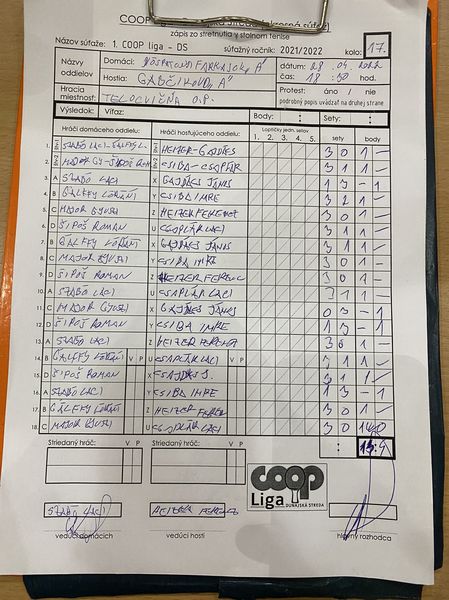 COOP
zápis zo stretnutia v stolnom tenise
Názov súťaže: 1. COOP liga - DS súťažný ročník: 2021/2022 kolo: 17.
Názov oddielov
Domáci: FARKAŠOK, A"
dátum:
Hostia: GABČÍKOVO "A"
čas: 18 30 hod.
Hracia miestnosť: TELOCVIČŇA O.P.
Protest: áno / nie
podrobný popis uvádzať na druhej strane
Výsledok: Víťaz: Body: : Sety: :
Hráči domáceho oddielu: Hráči hosťujúceho oddielu: Loptičky jedn. setov sety body
1. 2. 3. 4. 5.
1. HEIZER-GAJDÁCS 3 0 1 -
2. CSIBA-CSAPLÁR 3 1 1 -
3. A SZABÓ LACI X GAJDÁCS JÁNOS 1 3 - 1
4. B GÁLFFY LÓRÁNT Y CSIBA IMRE 3 2 1 -
5. C MAJOR GYUSZI Z HEIZER FERENC 3 0 1 -
6. D ŠIPOŠ ROMAN U CSAPLÁR LACI 3 1 1 -
7. B GÁLFFY LÓRÁNT X GAJDÁCS JÁNOS 3 1 1 -
8. C MAJOR GYUSZI Y CSIBA IMRE 3 0 1 -
9. D ŠIPOŠ ROMAN Z HEIZER FERENC 3 0 1 -
10. A SZABÓ LACI U CSAPLÁR LACI 3 1 1 -
11. C MAJOR GYUSZI X GAJDÁCS JÁNOS 0 3 - 1
12. D ŠIPOŠ ROMAN Y CSIBA IMRE 1 3 - 1
13. A SZABÓ LACI Z HEIZER FERENC 3 0 1 -
14. B GÁLFFY LÓRÁNT V P U CSAPLÁR LACI V P 3 1 1 -
15. D ŠIPOŠ ROMAN X GAJDÁCS J. 3 1 1
16. A SZABÓ LACI Y CSIBA IMRE 1 3 - 1
17. B GÁLFFY LÓRÁNT Z HEIZER FERENC 3 0 1 -
18. C MAJOR GYUSZI U CSAPLÁR LACI 3 0 1
Striedaný hráč: V P Striedaný hráč: V P : 4
COOP
Liga DUNAJSKÁ STREDA
SZABÓ LACI HEIZER FERENC
vedúci domácich vedúci hostí hlavný rozhodca